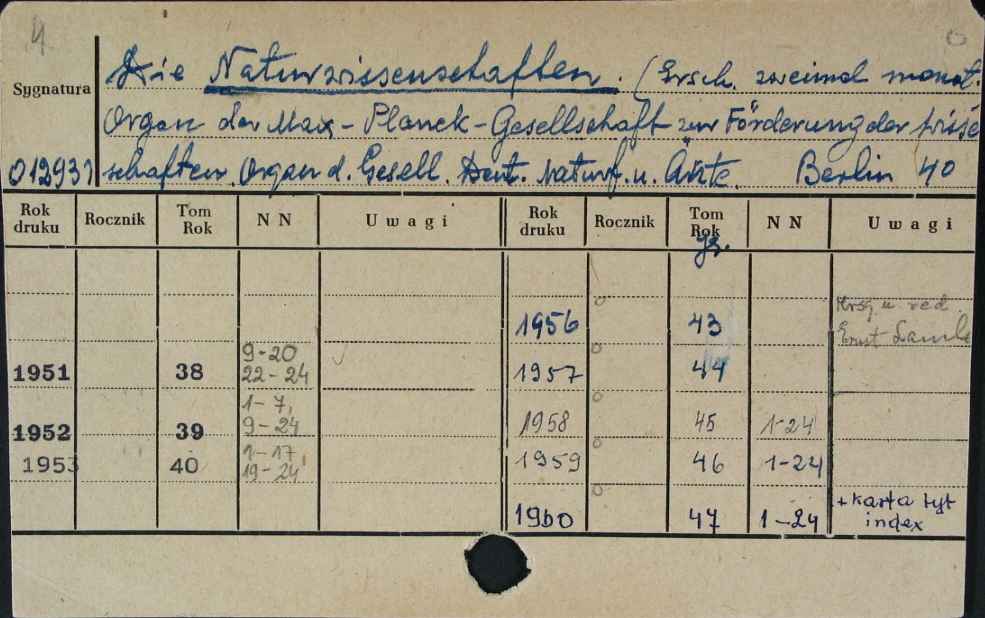 4.
Die Naturwissenschaften. (Ersch. zweimal monat.
Sygnatura
Organ der Max-Planck-Gesellschaft zur Förderung der Wisse
012937 schaften. Organ d. Gesell. Deut. Naturf. u. Ärzte. Berlin 40
Rok druku Rocznik Tom Rok NN Uwagi Rok druku Rocznik Tom Rok NN Uwagi
Jg.
Hrsg. u. red.
1956 43 Ernst
9-20
1951 38 22-24 1957 44
1-7,
1952 39 9-24 1958 45 1-24
1-17,
1953 40 19-24 1959 46 1-24
+ karta tyt
1960 47 1-24 index